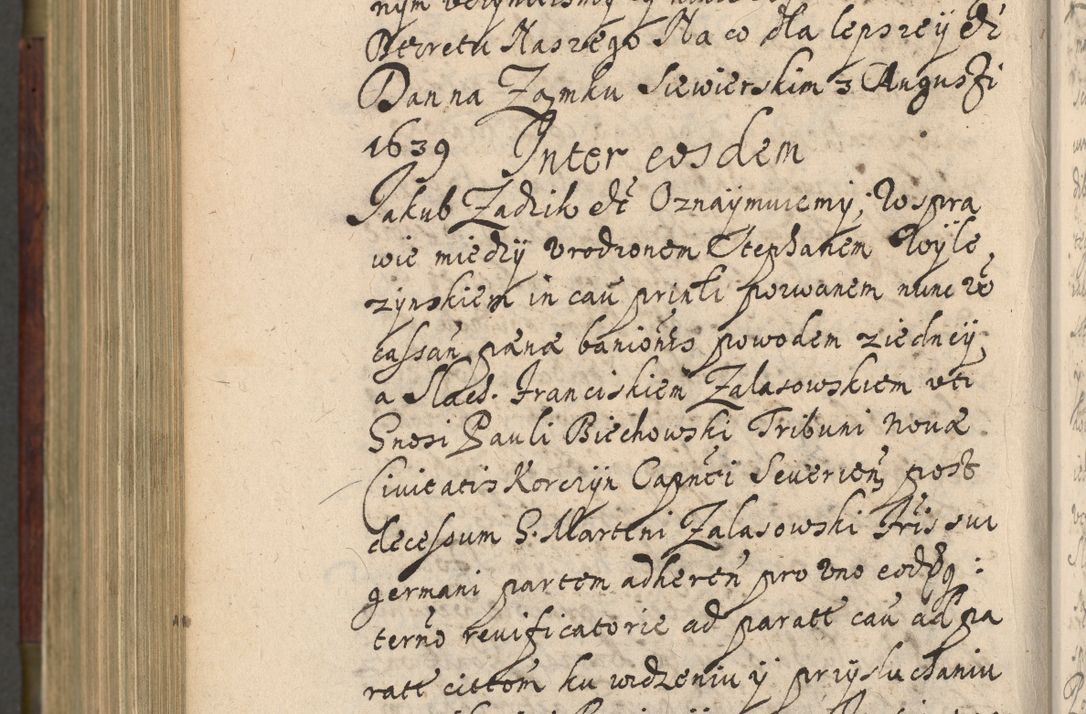 Dekretu Naszego Na co dla lepszeÿ etc
Dan na Zamku Siewierskim 3 Augusti
1639 Inter eosdem
Jakub Zadzik etc Oznaÿmuiemy, W spra
wie miedzÿ Urodzonem Stephanem Woÿle
zÿnskiem in cau prinli pozwanem nunc vo
cassan pænæ banionis powodem z iedneÿ
a Slaed. Franciskiem Zalasowskiem uti
Gnosi Pauli Biechowski Tribuni Novæ
Civitatis Korczÿn Capnei Severien post
decessum G. Martini Zalasowski Fris sui
germani partem adheren pro uno eodq :
terno revificatorie ad paratt cau ad pa
ratt cittom ku widzeniu ÿ przÿsluchaniu